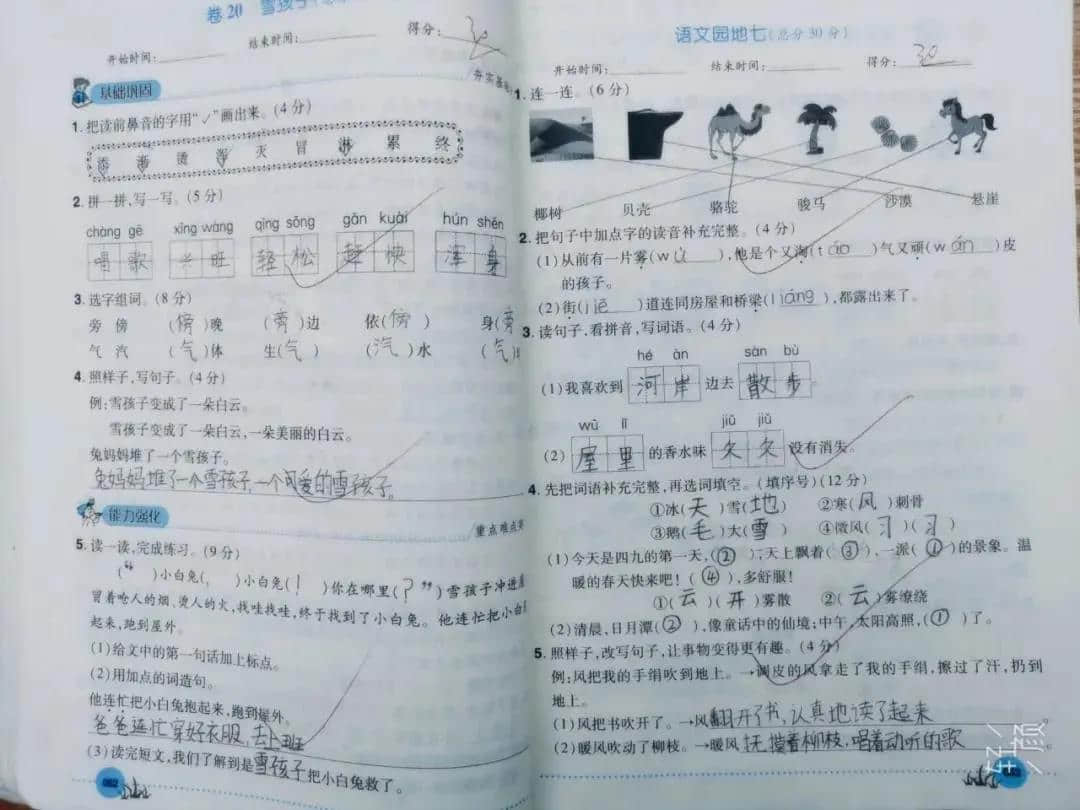 卷20 雪孩子
开始时间: 结束时间: 得分: 30
夯实基
基础巩固
1.把读前鼻音的字用“✓”画出来。(4分)
添 渐 烫 浑 灭 冒 淋 累 终
2.拼一拼,写一写。(5分)
chàng gē xīng wàng qīng sōng gǎn kuài hún shēn
唱歌 兴旺 轻松 赶快 浑身
3.选字组词。(8分)
旁 傍 (傍)晚 (旁)边 依(傍) 身(旁
气 汽 (气)体 生(气) (汽)水 (气)
4.照样子,写句子。(4分)
例:雪孩子变成了一朵白云。
雪孩子变成了一朵白云,一朵美丽的白云。
兔妈妈堆了一个雪孩子。
兔妈妈堆了一个雪孩子,一个可爱的雪孩子。
能力强化
重点难点突
5.读一读,完成练习。(9分)
(“ )小白兔(, )小白兔(！ )你在哪里(？”)雪孩子冲进
冒着呛人的烟、烫人的火,找哇找哇,终于找到了小白兔。他连忙把小白
起来,跑到屋外。
(1)给文中的第一句话加上标点。
(2)用加点的词造句。
他连忙把小白兔抱起来,跑到屋外。
爸爸连忙穿好衣服,去上班
(3)读完短文,我们了解到是雪孩子把小白兔救了。
语文园地七(总分30分)
开始时间: 结束时间: 得分: 30
1.连一连。(6分)
椰树 贝壳 骆驼 骏马 沙漠 悬崖
2.把句子中加点字的读音补充完整。(4分)
(1)从前有一片雾(wù),他是个又淘(táo)气又顽(wán)皮
的孩子。
(2)街(jiē)道连同房屋和桥梁(liáng),都露出来了。
3.读句子,看拼音,写词语。(4分)
hé àn sàn bù
(1)我喜欢到 河岸 边去 散步
wū lǐ jiǔ jiǔ
(2) 屋里 的香水味 久久 没有消失。
4.先把词语补充完整,再选词填空。(填序号)(12分)
①冰(天)雪(地) ②寒(风)刺骨
③鹅(毛)大(雪) ④微风(习)(习)
(1)今天是四九的第一天,(②),天上飘着(③),一派(①)的景象。温
暖的春天快来吧!(④),多舒服!
①(云)(开)雾散 ②(云)雾缭绕
(2)清晨,日月潭(②),像童话中的仙境;中午,太阳高照,(①)了。
5.照样子,改写句子,让事物变得更有趣。(4分)
例:风把我的手绢吹到地上。→调皮的风拿走了我的手绢,擦过了汗,扔到
地上。
(1)风把书吹开了。→风翻开了书,认真地读了起来
(2)暖风吹动了柳枝。→暖风抚摸着柳枝,唱着动听的歌。